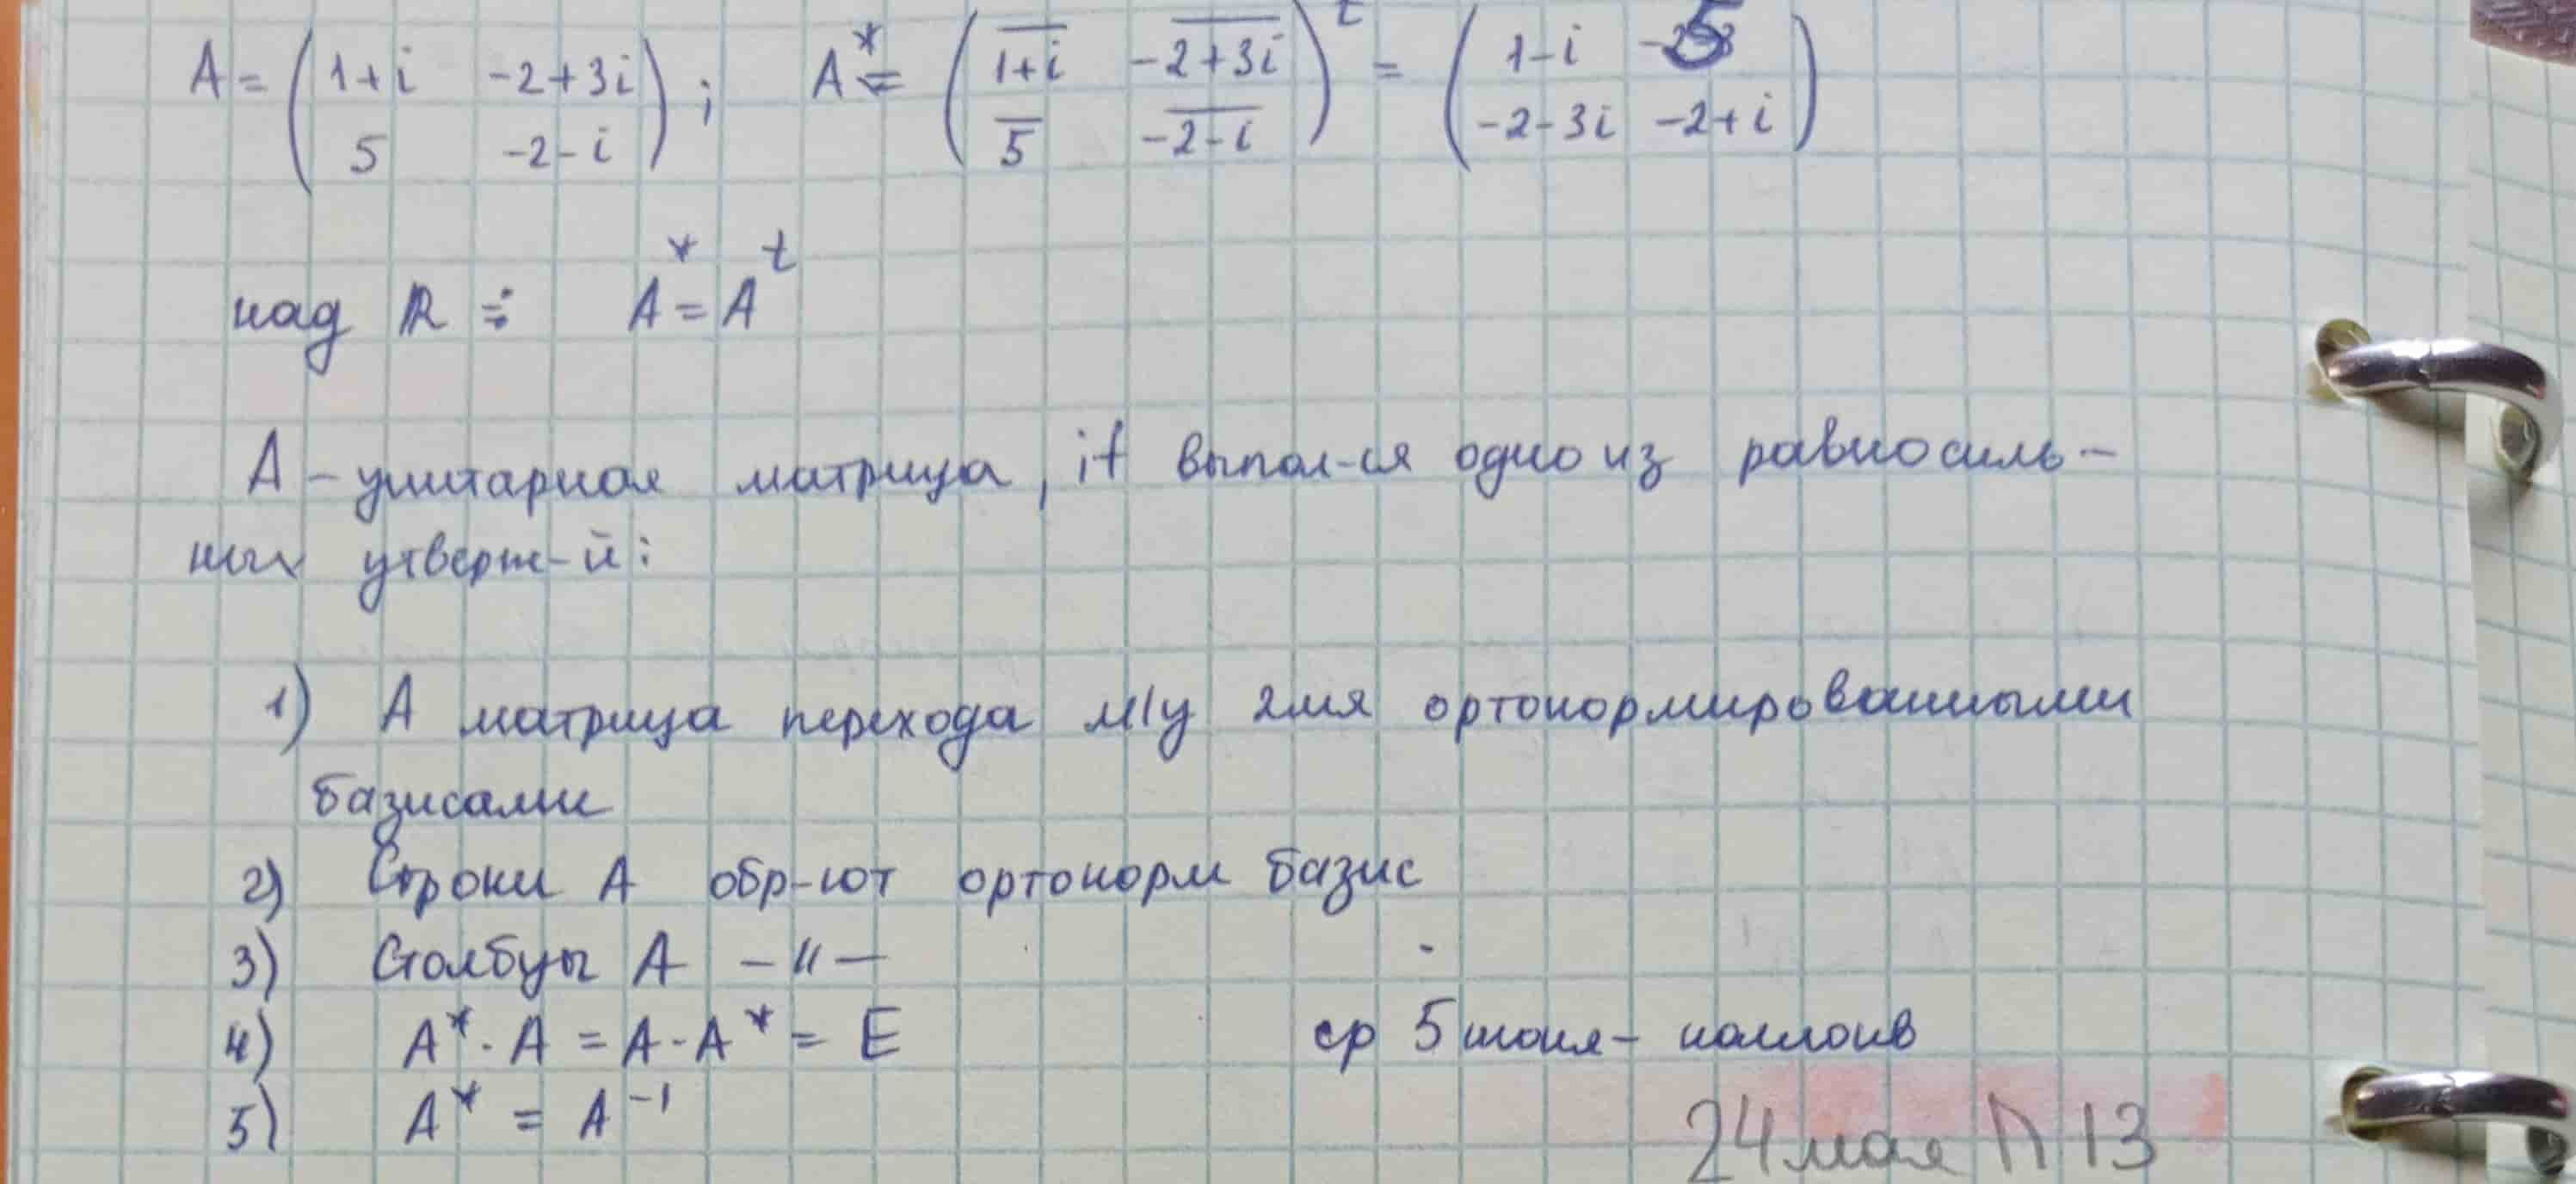 A = (1+i -2+3i; 5 -2-i); A* = (\overline{1+i} -\overline{2+3i}; \overline{5} -\overline{2-i})^t = (1-i 5; -2-3i -2+i)
над R: A* = A^t
A – унитарная матрица, if выпол-ся одно из равносиль-
ных утверж-й:
1) A матрица перехода м/у 2мя ортонормированными
базисами
2) Строки A обр-ют ортонорм базис
3) Столбцы A –"–
4) A* · A = A · A* = E
ср 5 июня – коллокв
5) A* = A^{-1}
24 мая П 13